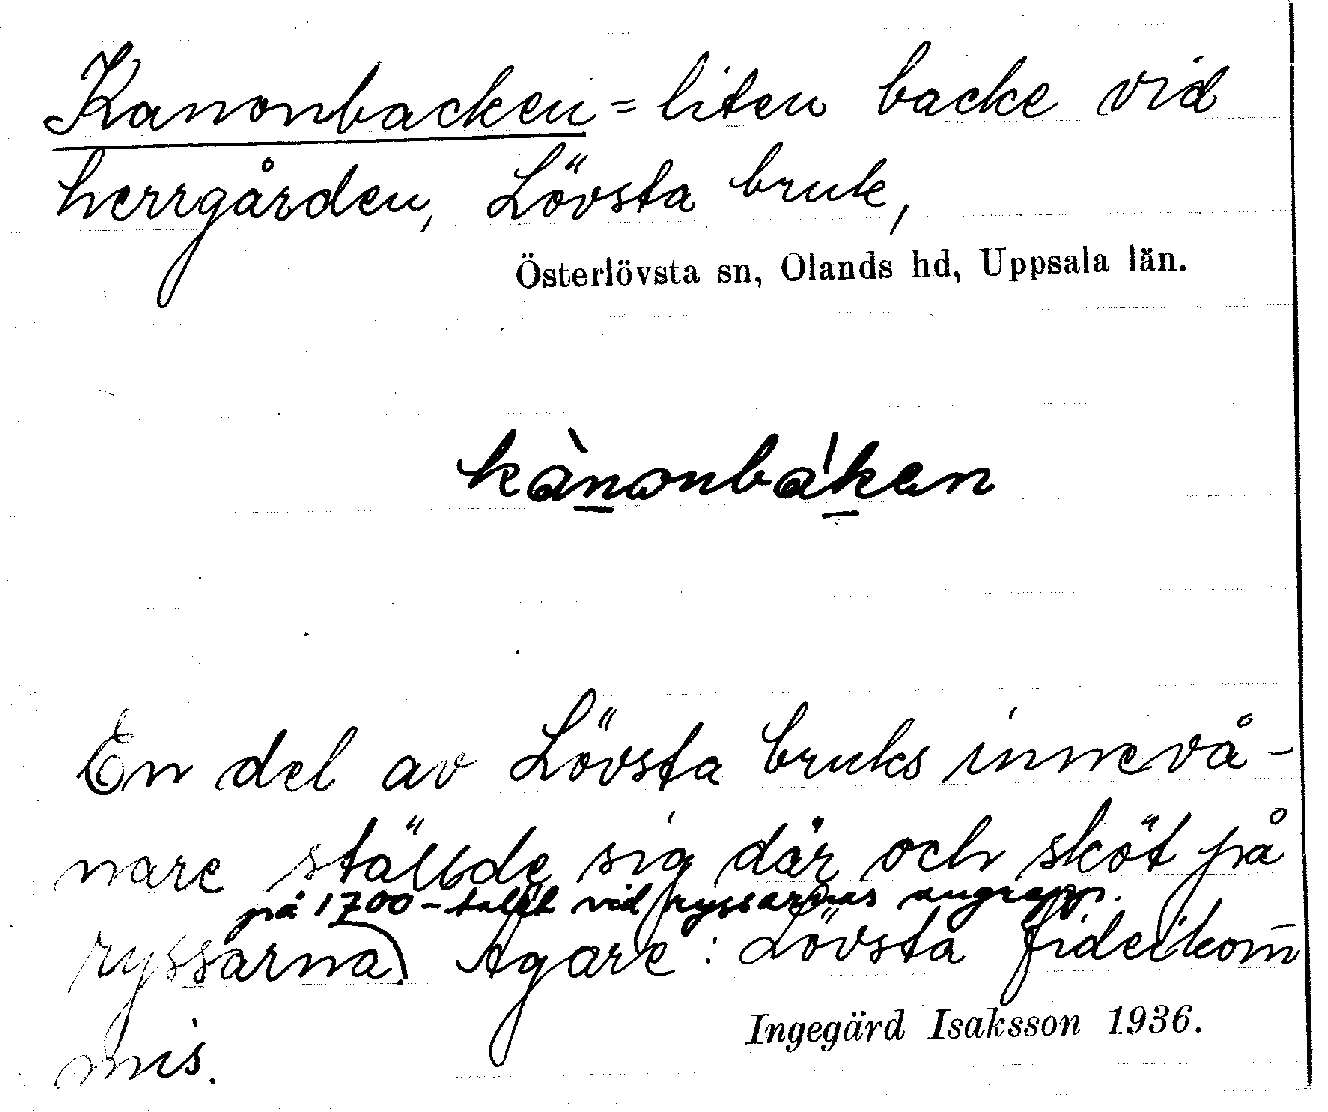 Kanonbacken = liten backe vid
herrgården, Lövsta bruk,
Österlövsta sn, Olands hd, Uppsala län.
kànonbák̠en
En del av Lövsta bruks innevå-
nare ställde sig där och sköt på
på 1700-talet vid ryssarnas angrepp.
ryssarna) Ägare: Lövsta fideikom̄
mis.
Ingegärd Isaksson 1936.